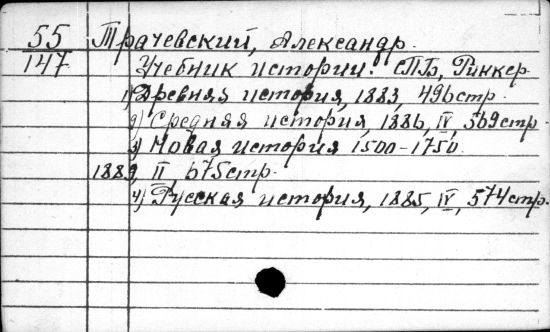 55 Трачевский, Александр.
147 Учебник истории. СПБ, Риккер.
1) Древняя история, 1883, 496стр.
2) Средняя история, 1886, IV, 569стр.
3) Новая история 1500-1750.
1889, II, 675стр.
4) Русская история, 1885, IV, 574стр.